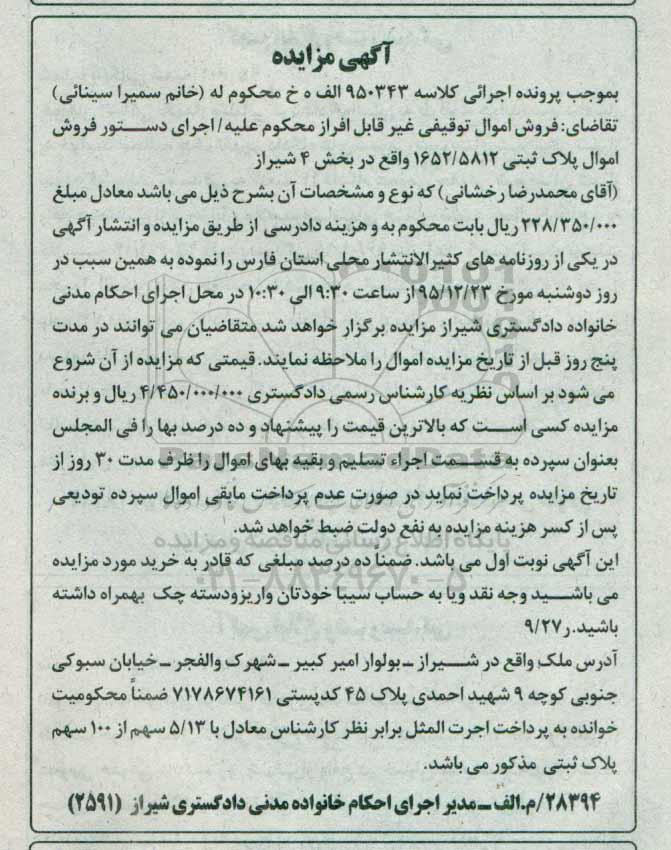 آگهی مزایده
بموجب پرونده اجرائی کلاسه ۹۵۰۳۴۳ الف ه خ محکوم له (خانم سمیرا سینائی)
تقاضای: فروش اموال توقیفی غیر قابل افراز محکوم علیه/ اجرای دستور فروش
اموال پلاک ثبتی ۱۶۵۲/۵۸۱۲ واقع در بخش ۴ شیراز
(آقای محمدرضا رخشانی) که نوع و مشخصات آن بشرح ذیل می باشد معادل مبلغ
۲۲۸/۳۵۰/۰۰۰ ریال بابت محکوم به و هزینه دادرسی از طریق مزایده و انتشار آگهی
در یکی از روزنامه های کثیرالانتشار محلی استان فارس را نموده به همین سبب در
روز دوشنبه مورخ ۹۵/۱۲/۲۳ از ساعت ۹:۳۰ الی ۱۰:۳۰ در محل اجرای احکام مدنی
خانواده دادگستری شیراز مزایده برگزار خواهد شد متقاضیان می توانند در مدت
پنج روز قبل از تاریخ مزایده اموال را ملاحظه نمایند. قیمتی که مزایده از آن شروع
می شود بر اساس نظریه کارشناس رسمی دادگستری ۴/۴۵۰/۰۰۰/۰۰۰ ریال و برنده
مزایده کسی است که بالاترین قیمت را پیشنهاد و ده درصد بها را فی المجلس
بعنوان سپرده به قسمت اجراء تسلیم و بقیه بهای اموال را ظرف مدت ۳۰ روز از
تاریخ مزایده پرداخت نماید در صورت عدم پرداخت مابقی اموال سپرده تودیعی
پس از کسر هزینه مزایده به نفع دولت ضبط خواهد شد.
این آگهی نوبت اول می باشد. ضمناً ده درصد مبلغی که قادر به خرید مورد مزایده
می باشید وجه نقد ویا به حساب سیبا خودتان واریزودسته چک بهمراه داشته
باشید. ر۹/۲۷
آدرس ملک واقع در شیراز ـ بولوار امیر کبیر ـ شهرک والفجر ـ خیابان سبوکی
جنوبی کوچه ۹ شهید احمدی پلاک ۴۵ کدپستی ۷۱۷۸۶۷۴۱۶۱ ضمناً محکومیت
خوانده به پرداخت اجرت المثل برابر نظر کارشناس معادل با ۵/۱۳ سهم از ۱۰۰ سهم
پلاک ثبتی مذکور می باشد.
۲۸۳۹۴/م.الف ـ مدیر اجرای احکام خانواده مدنی دادگستری شیراز (۲۵۹۱)
پایگاه اطلاع رسانی مناقصه و مزایده
۰۲۱-۸۸۳۴۹۶۷۰-۵